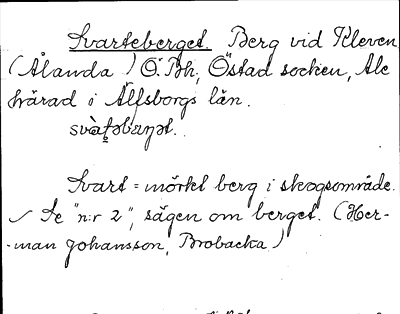 Svarteberget. Berg vid Kleven
(Ålanda) Ö. Bh, Östad socken, Ale
härad i Älfsborgs län.
Svart = mörkt berg i skogsområde.
✓ Se "n:r 2", sägen om berget. (Her-
-man Johansson, Brobacka)